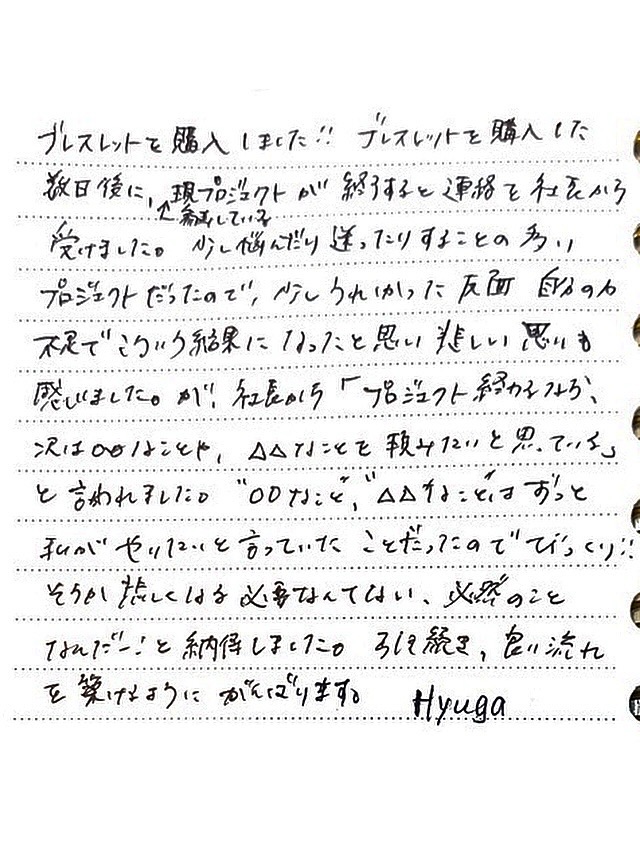 ブレスレットを購入しました!! ブレスレットを購入した
数日後に,現プロジェクトが終了すると連絡を社長から
↑ 今動している
受けました。少し悩んだり迷ったりすることの多い
プロジェクトだったので,少しうれしかった反面 自分の力
不足でこういう結果になったと思い 悲しい思いも
感じました。が,社長から「プロジェクト終わるなら、
次は○○なことや,△△なことを頼みたいと思っている」
と言われました。"○○なこと","△△なこと"はずっと
私がやりたいと言っていたことだったのでびっくり!!
そうか 悲しくなる必要なんてない、必然のこと
なんだー!と納得しました。引き続き,良い流れ
を築けるようにがんばります。 Hyuga